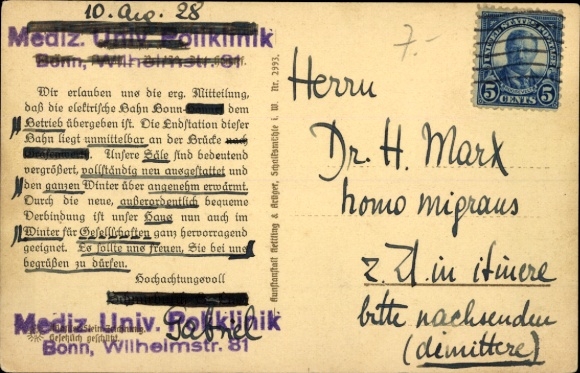 10. Aug. 28
Mediz. Univ. Poliklinik
Bonn, Wilhelmstr. 31
Wir erlauben uns die erg. Mitteilung,
daß die elektrische Bahn Bonn- dem
Betrieb übergeben ist. Die Endstation dieser
Bahn liegt unmittelbar an der Brücke nach
Unsere Säle sind bedeutend
vergrößert, vollständig neu ausgestattet und
den ganzen Winter über angenehm erwärmt.
Durch die neue, außerordentlich bequeme
Verbindung ist unser Haus nun auch im
Winter für Gesellschaften ganz hervorragend
geeignet. Es sollte uns freuen, Sie bei uns
begrüßen zu dürfen.
Hochachtungsvoll
Gabriel
Mediz. Univ. Poliklinik
Gesetzlich geschützt.
Bonn, Wilhelmstr. 31
Kunstanstalt Hettling & Krüger, Schalksmühle i. W. Nr. 2993.
7.-
UNITED STATES POSTAGE
5 CENTS 5
Herrn
Dr. H. Marx
homo migrans
z. Zt. in itinere
bitte nachsenden
(demittere)